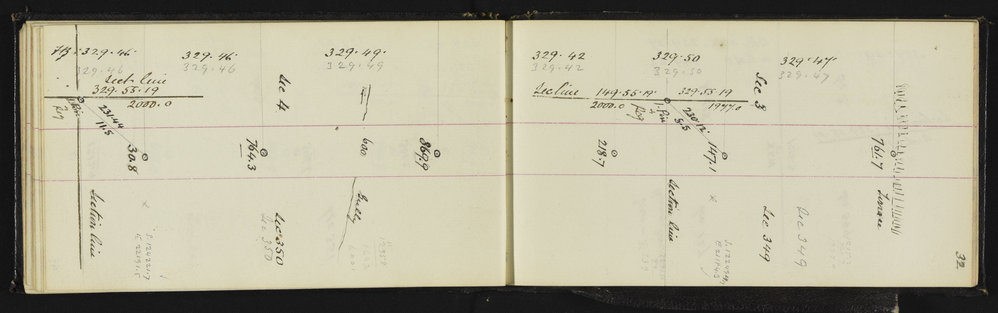 329.46 329.46 329.49
329.46 329.46 329.49
Sect. line
329.55.19
2000.0
Sec 4
Peg
231.44
11.5
30.8
764.3
600
869.9
Section line
Sec 350
Sec 350
Gully
329.42 329.50 329.47
329.42 329.50 329.47
Sec line 149.55.19 329.55.19
2000.0 1977.0
Sec 3
Peg + I. Pin
230.12
5.5
218.7
147.1
761.7
Terrace
Section line
Sec 349
Sec 349
32